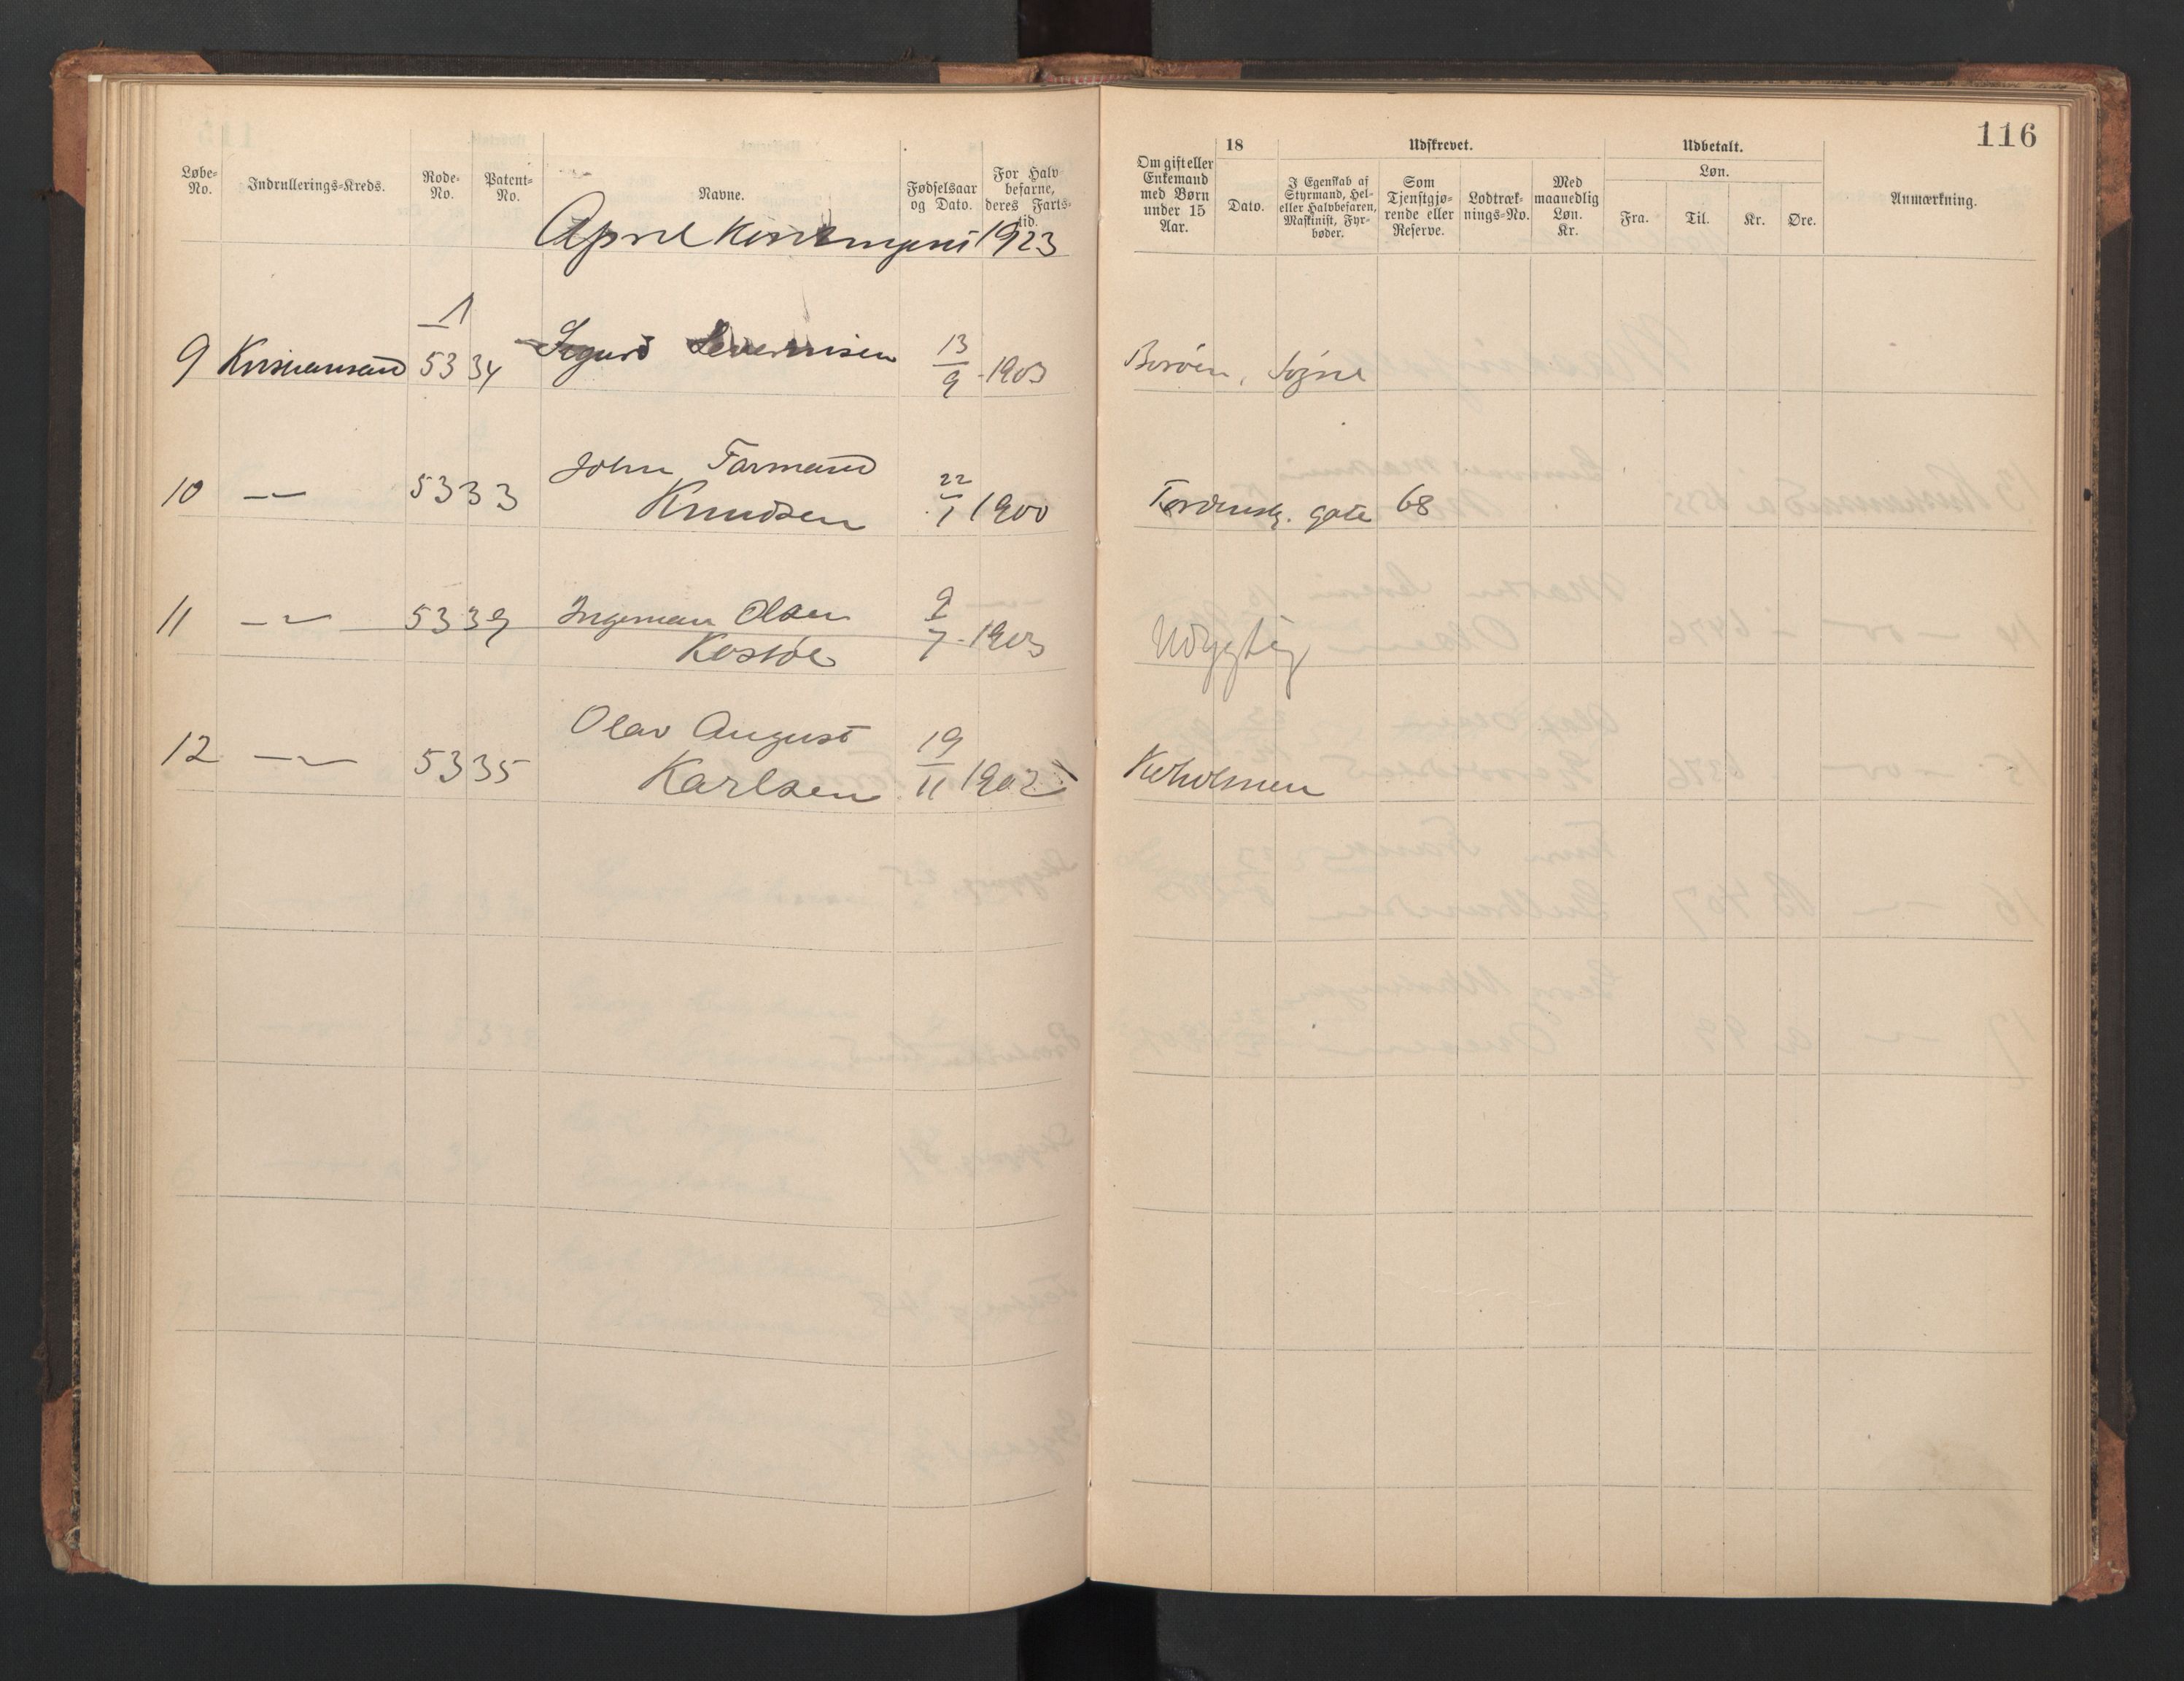 116
Løbe-No.
Indrullerings-Kreds.
Rode-No.
Patent-No.
Navne.
Fødselsaar og Dato.
For Halvbefarne, deres Fartstid.
Om gift eller Enkemand med Børn under 15 Aar.
18
Dato.
Udskrevet.
I Egenskab af Styrmand, Hel- eller Halvbefaren, Maskinist, Fyrbøder.
Som Tjenstgjørende eller Reserve.
Lodtræknings-No.
Med maanedlig Løn. Kr.
Udbetalt.
Løn.
Fra.
Til.
Kr.
Øre.
Anmærkning.
April Kontingent 1923
1
9 Kristiansand 5334 Sigurd Severinsen 13/9 -1903 Borøen, Søgne
10 -"- 5333 John Tarmand Knudsen 22/1 1900 Tordensk. gate 68
11 -"- 5339 Ingeman Olsen 9/7 -1903 Udygtig
12 -"- 5335 Olav August Karlsen 19/11 1902